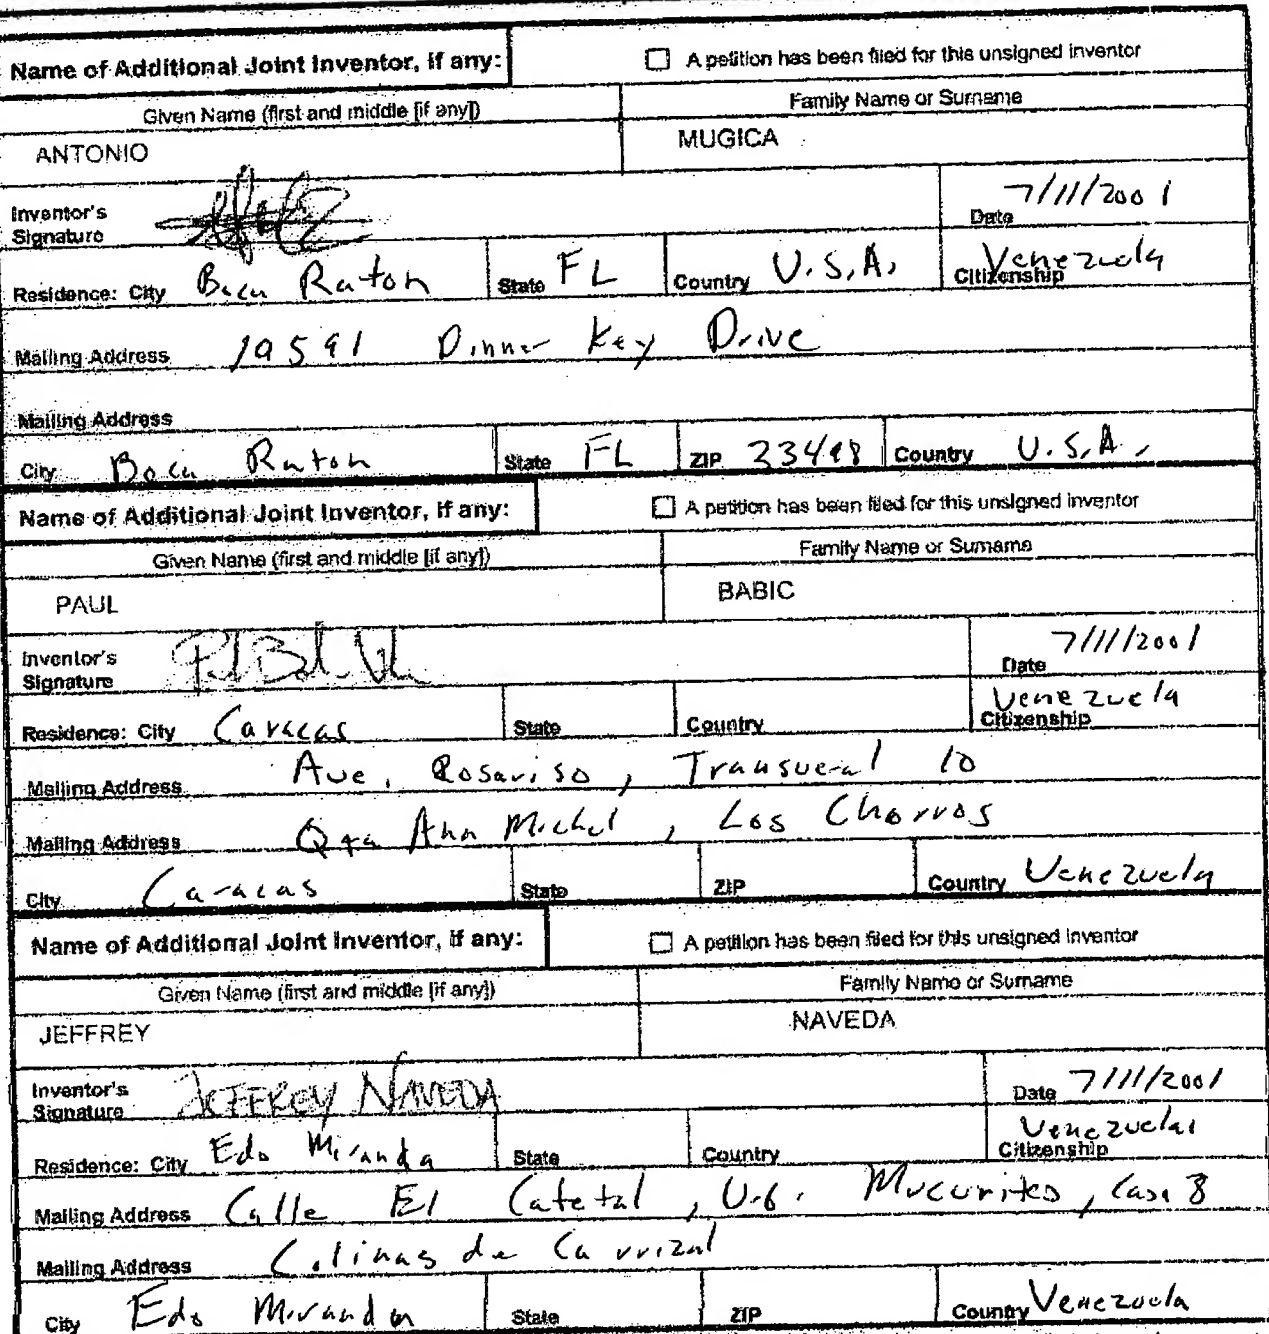 Name of Additional Joint Inventor, if any: A petition has been filed for this unsigned inventor
Given Name (first and middle [if any]) Family Name or Surname
ANTONIO MUGICA
Inventor's Signature Date 7/11/2001
Residence: City Boca Raton State FL Country U.S.A. Citizenship Venezuela
Mailing Address 19591 Dinner Key Drive
Mailing Address
City Boca Raton State FL ZIP 33498 Country U.S.A.
Name of Additional Joint Inventor, if any: A petition has been filed for this unsigned inventor
Given Name (first and middle [if any]) Family Name or Surname
PAUL BABIC
Inventor's Signature Date 7/11/2001
Residence: City Caracas State Country Citizenship Venezuela
Mailing Address Ave. Rosariso, Transveral 10
Mailing Address Qta Ana Michel, Los Chorros
City Caracas State ZIP Country Venezuela
Name of Additional Joint Inventor, if any: A petition has been filed for this unsigned inventor
Given Name (first and middle [if any]) Family Name or Surname
JEFFREY NAVEDA
Inventor's Signature JEFFREY NAVEDA Date 7/11/2001
Residence: City Edo Miranda State Country Citizenship Venezuela
Mailing Address Calle El Cafetal, Urb. Casa 8
Mailing Address Colinas de Carrizal
City Edo Miranda State ZIP Country Venezuela